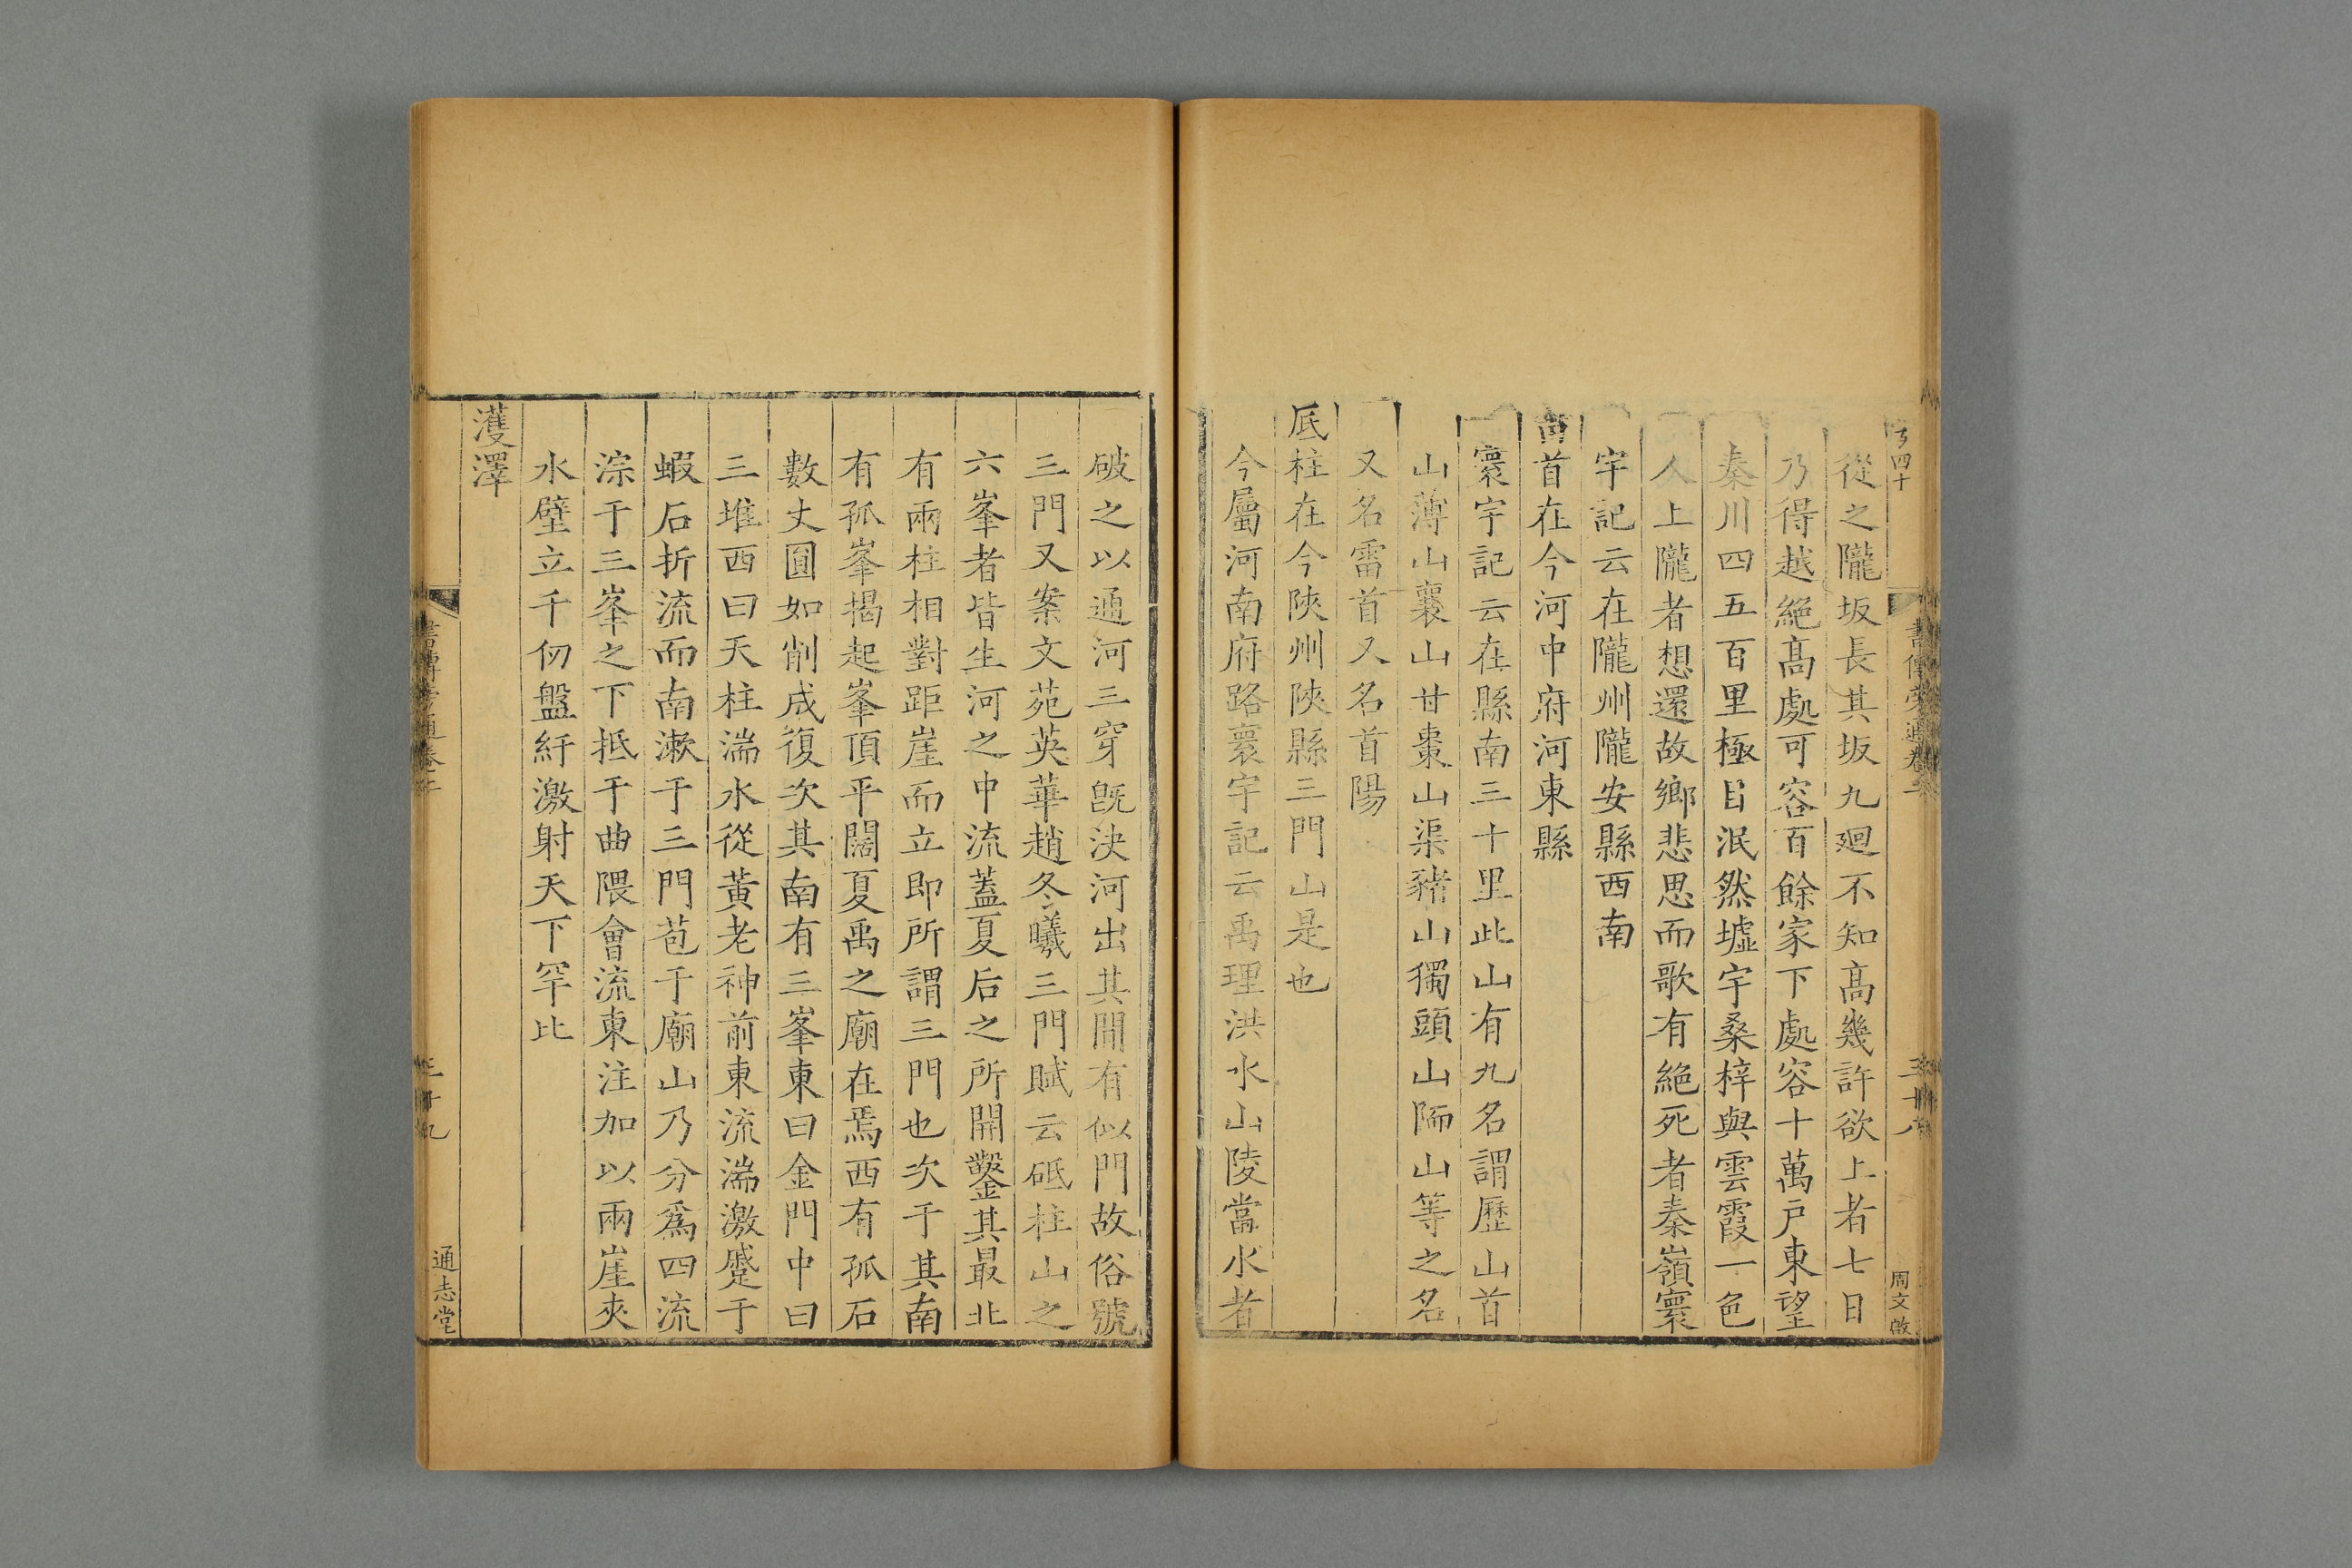 從之隴坂長其坂九廻不知髙幾許欲上者七日
乃得越絕髙處可容百餘家下處容十萬戶東望
秦川四五百里極目泯然墟宇桑梓與雲霞一色
人上隴者想還故鄉悲思而歌有絕死者秦嶺寰
宇記云在隴州隴安縣西南
首在今河中府河東縣
寰宇記云在縣南三十里此山有九名謂歷山首
山薄山襄山甘棗山渠豬山獨頭山陑山等之名
又名雷首又名首陽
底柱在今陝州陝縣三門山是也
今屬河南府路寰宇記云禹理洪水山陵當水者
書傳旁通卷二
三十八
周文啟
破之以通河三穿旣決河出其間有似門故俗號
三門又案文苑英華趙冬曦三門賦云砥柱山之
六峯者皆生河之中流蓋夏后之所開鑿其最北
有兩柱相對距崖而立即所謂三門也次于其南
有孤峯揭起峯頂平闊夏禹之廟在焉西有孤石
數丈圓如削成復次其南有三峯東曰金門中曰
三堆西曰天柱湍水從黃老神前東流湍激蹙于
蝦石折流而南漱于三門苞于廟山乃分爲四流
淙于三峯之下抵于曲隈會流東注加以兩崖夾
水壁立千仞盤紆激射天下罕比
濩澤
書傳旁通卷二
三十九
通志堂